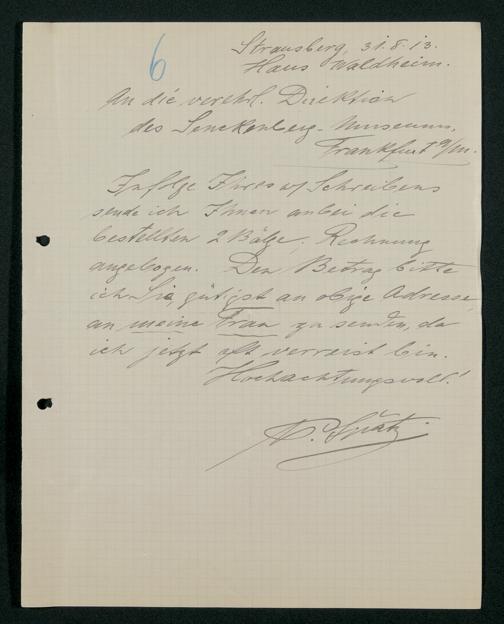 6
Strausberg, 31.8.13.
Haus Waldheim.
An die verehrl. Direktion
des Senckenberg-Museums,
Frankfurt a/m.
Infolge Ihres Schreibens
sende ich Ihnen anbei die
bestellten 2 Bälge; Rechnung
angebogen. Den Betrag bitte
ich Sie, gütigst an obige Adresse
an meine Frau zu senden, da
ich jetzt oft verreist bin.
Hochachtungsvoll!
P. Spatz.